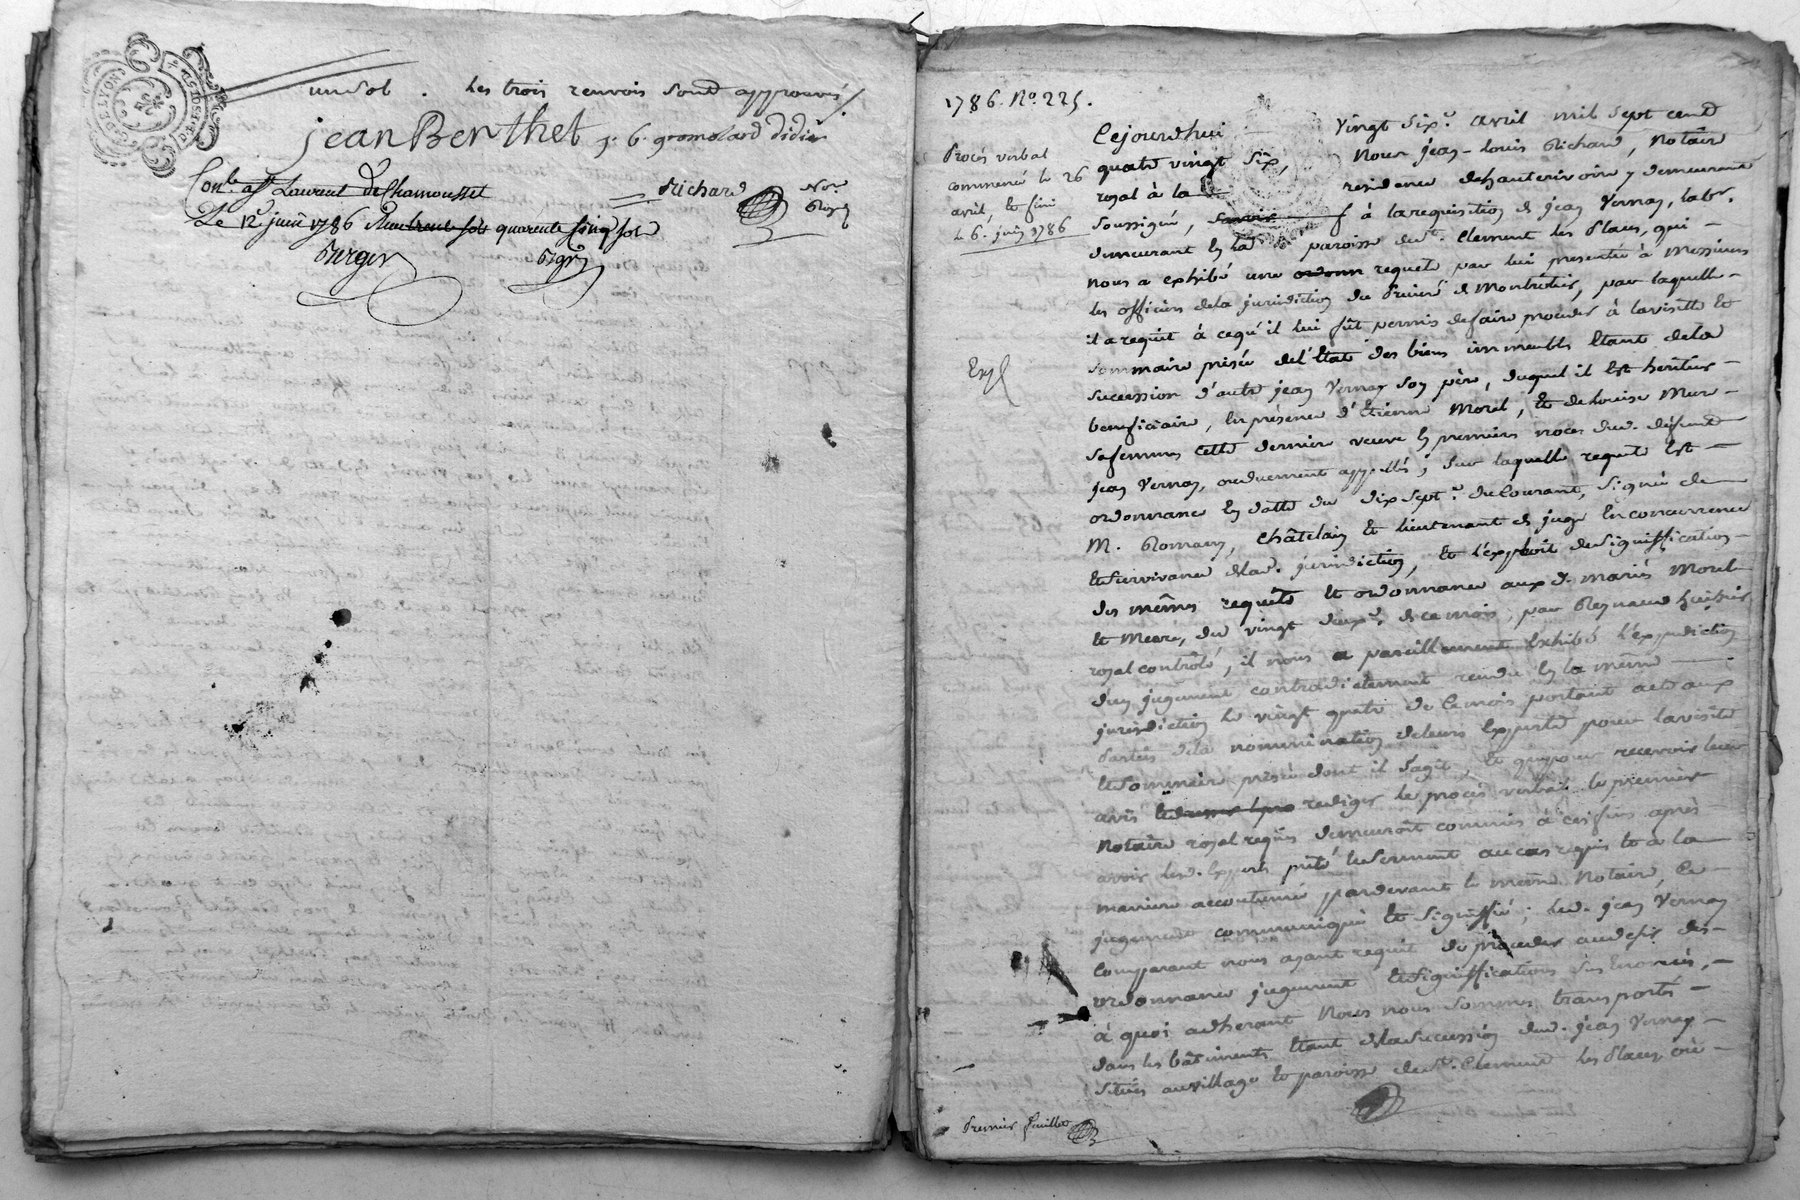 DE LYON
un sol. Les trois renvois sont approuvés /.
jean Berthet j. b. gromolard didier
Conlé a St Laurent de Chamousset
Richard No.re Roy.
Le 12 juin 1786 quarante cinq sols
Berger
1786. No. 225.
Procés verbal
commencé le 26
avril, et fini
le 6. juin 1786
Exp
Cejourdhui vingt six.e avril mil sept cent
quatre vingt six, Nous jean-louis Richard, Notaire
royal à la residence dehauterivoire y demeurant
Soussigné, à larequisition de jean Vernay, lab.r
demeurant en la paroisse de St. Clement les Places, qui
nous a exhibé une requete par lui presentée à Messieurs
les officiers dela jurisdiction du Prieuré de Montrotier, par laquelle
il a requit à cequ'il lui fût permis defaire proceder à lavisitte et
Sommaire prisée del'Etat des biens immeubles Etant dela
Succession d'autre jean Vernay Son père, duquel il Est heritier
beneficiaire, En présence d'Etienne Morel, et de Louise Mure
Safemme, cette derniere veuve En premiers noces dud. défunt
jean Vernay, ouduement appellés; Sur laquelle requete Est
ordonnance En datte du dix Sept.e ducourant, Signée de
M. Romany, Châtelain et lieutenant de juge En concurrence
et Survivance delad. jurisdiction, et l'exploit deSigniffication
des mêmes requete et ordonnance aux d. mariés Morel
et Mure, du vingt deux.e de cemois, par Reynaud huissier
royal contrôlé, il nous a pareillement Exhibé l'expedition
d'un jugement contradictoirement rendu En la même
jurisdiction le vingt quatre de cemois portant acte aux
Parties dela nomination deleurs Experts pour lavisite
et Sommaire prisée dont il S'agit, et que pour recevoir leur
avis rediger le procès verbal le premier
Notaire royal requis demeuroit commis à cesfins après
avoir desd. Experts prété leSerment aucas requis et à la
maniere accoutumée pardevant le même Notaire, le
jugement communiqué et Signiffié; led. jean Vernay
Comparant nous ayant requit de proceder audesir des
ordonnance jugement etSigniffications Sus Enoncés,
à quoi adherant Nous nous Sommes transportés
dans les bâtiments Etant delaSuccession dud. jean Vernay
Situés auvillage et paroisse de St. Clement les Places, où
Premier feuillet